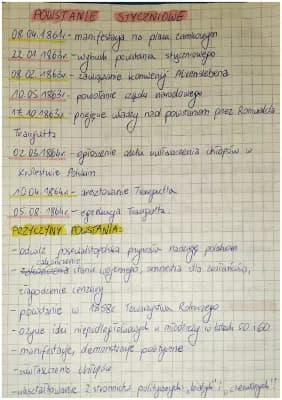 POWSTANIE STYCZNIOWE
08.04.1861r. - manifestacja na placu zamkowym
22.01.1863r. - wybuch powstania styczniowego
08.02.1863r. - zawiązanie konwencji Alvenslebena
10.05.1863r. - powstanie rządu narodowego
17.10.1863r. - przejęcie władzy nad powstaniem przez Romualda
Traugutta
02.03.1864r. - ogłoszenie aktu uwłaszczenia chłopów w
Królestwie Polskim
10.04.1864r. - aresztowanie Traugutta
05.08.1864r. - egzekucja Traugutta
PRZYCZYNY POWSTANIA:
- odwilż posewastopolska przynosi nadzieję polakom
- zakończenie stanu wojennego, amnestia dla zesłańców,
złagodzenie cenzury
- powstanie w 1858r. Towarzystwa Rolniczego
- ożycie idei niepodległościowych w młodzieży w latach 50. i 60.
- manifestacje, demonstracje patriotyczne
- uwłaszczenie chłopów
- ukształtowanie 2 stronnictw politycznych: "białych" i "czerwonych"